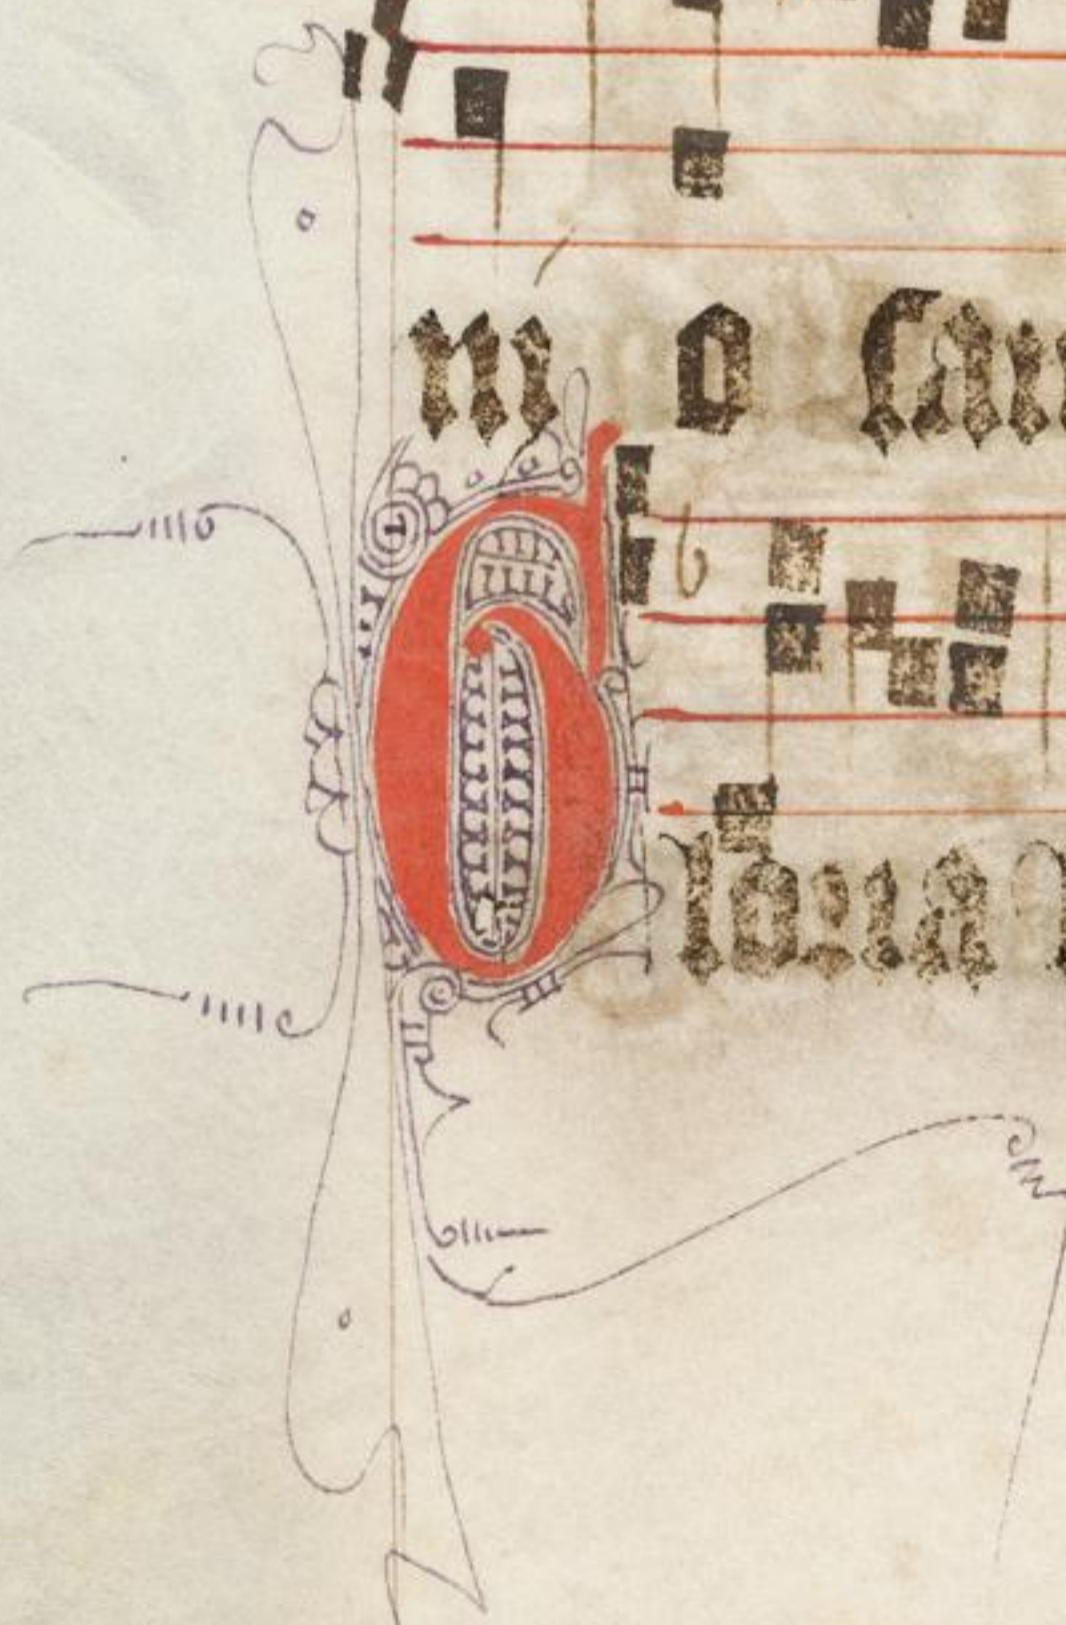 m o san
Gloria